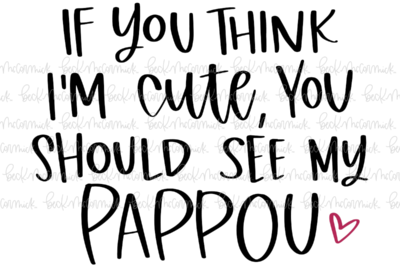 IF YOU THINK
I'M cute, YOU
SHOULD SEE MY
PAPPOU